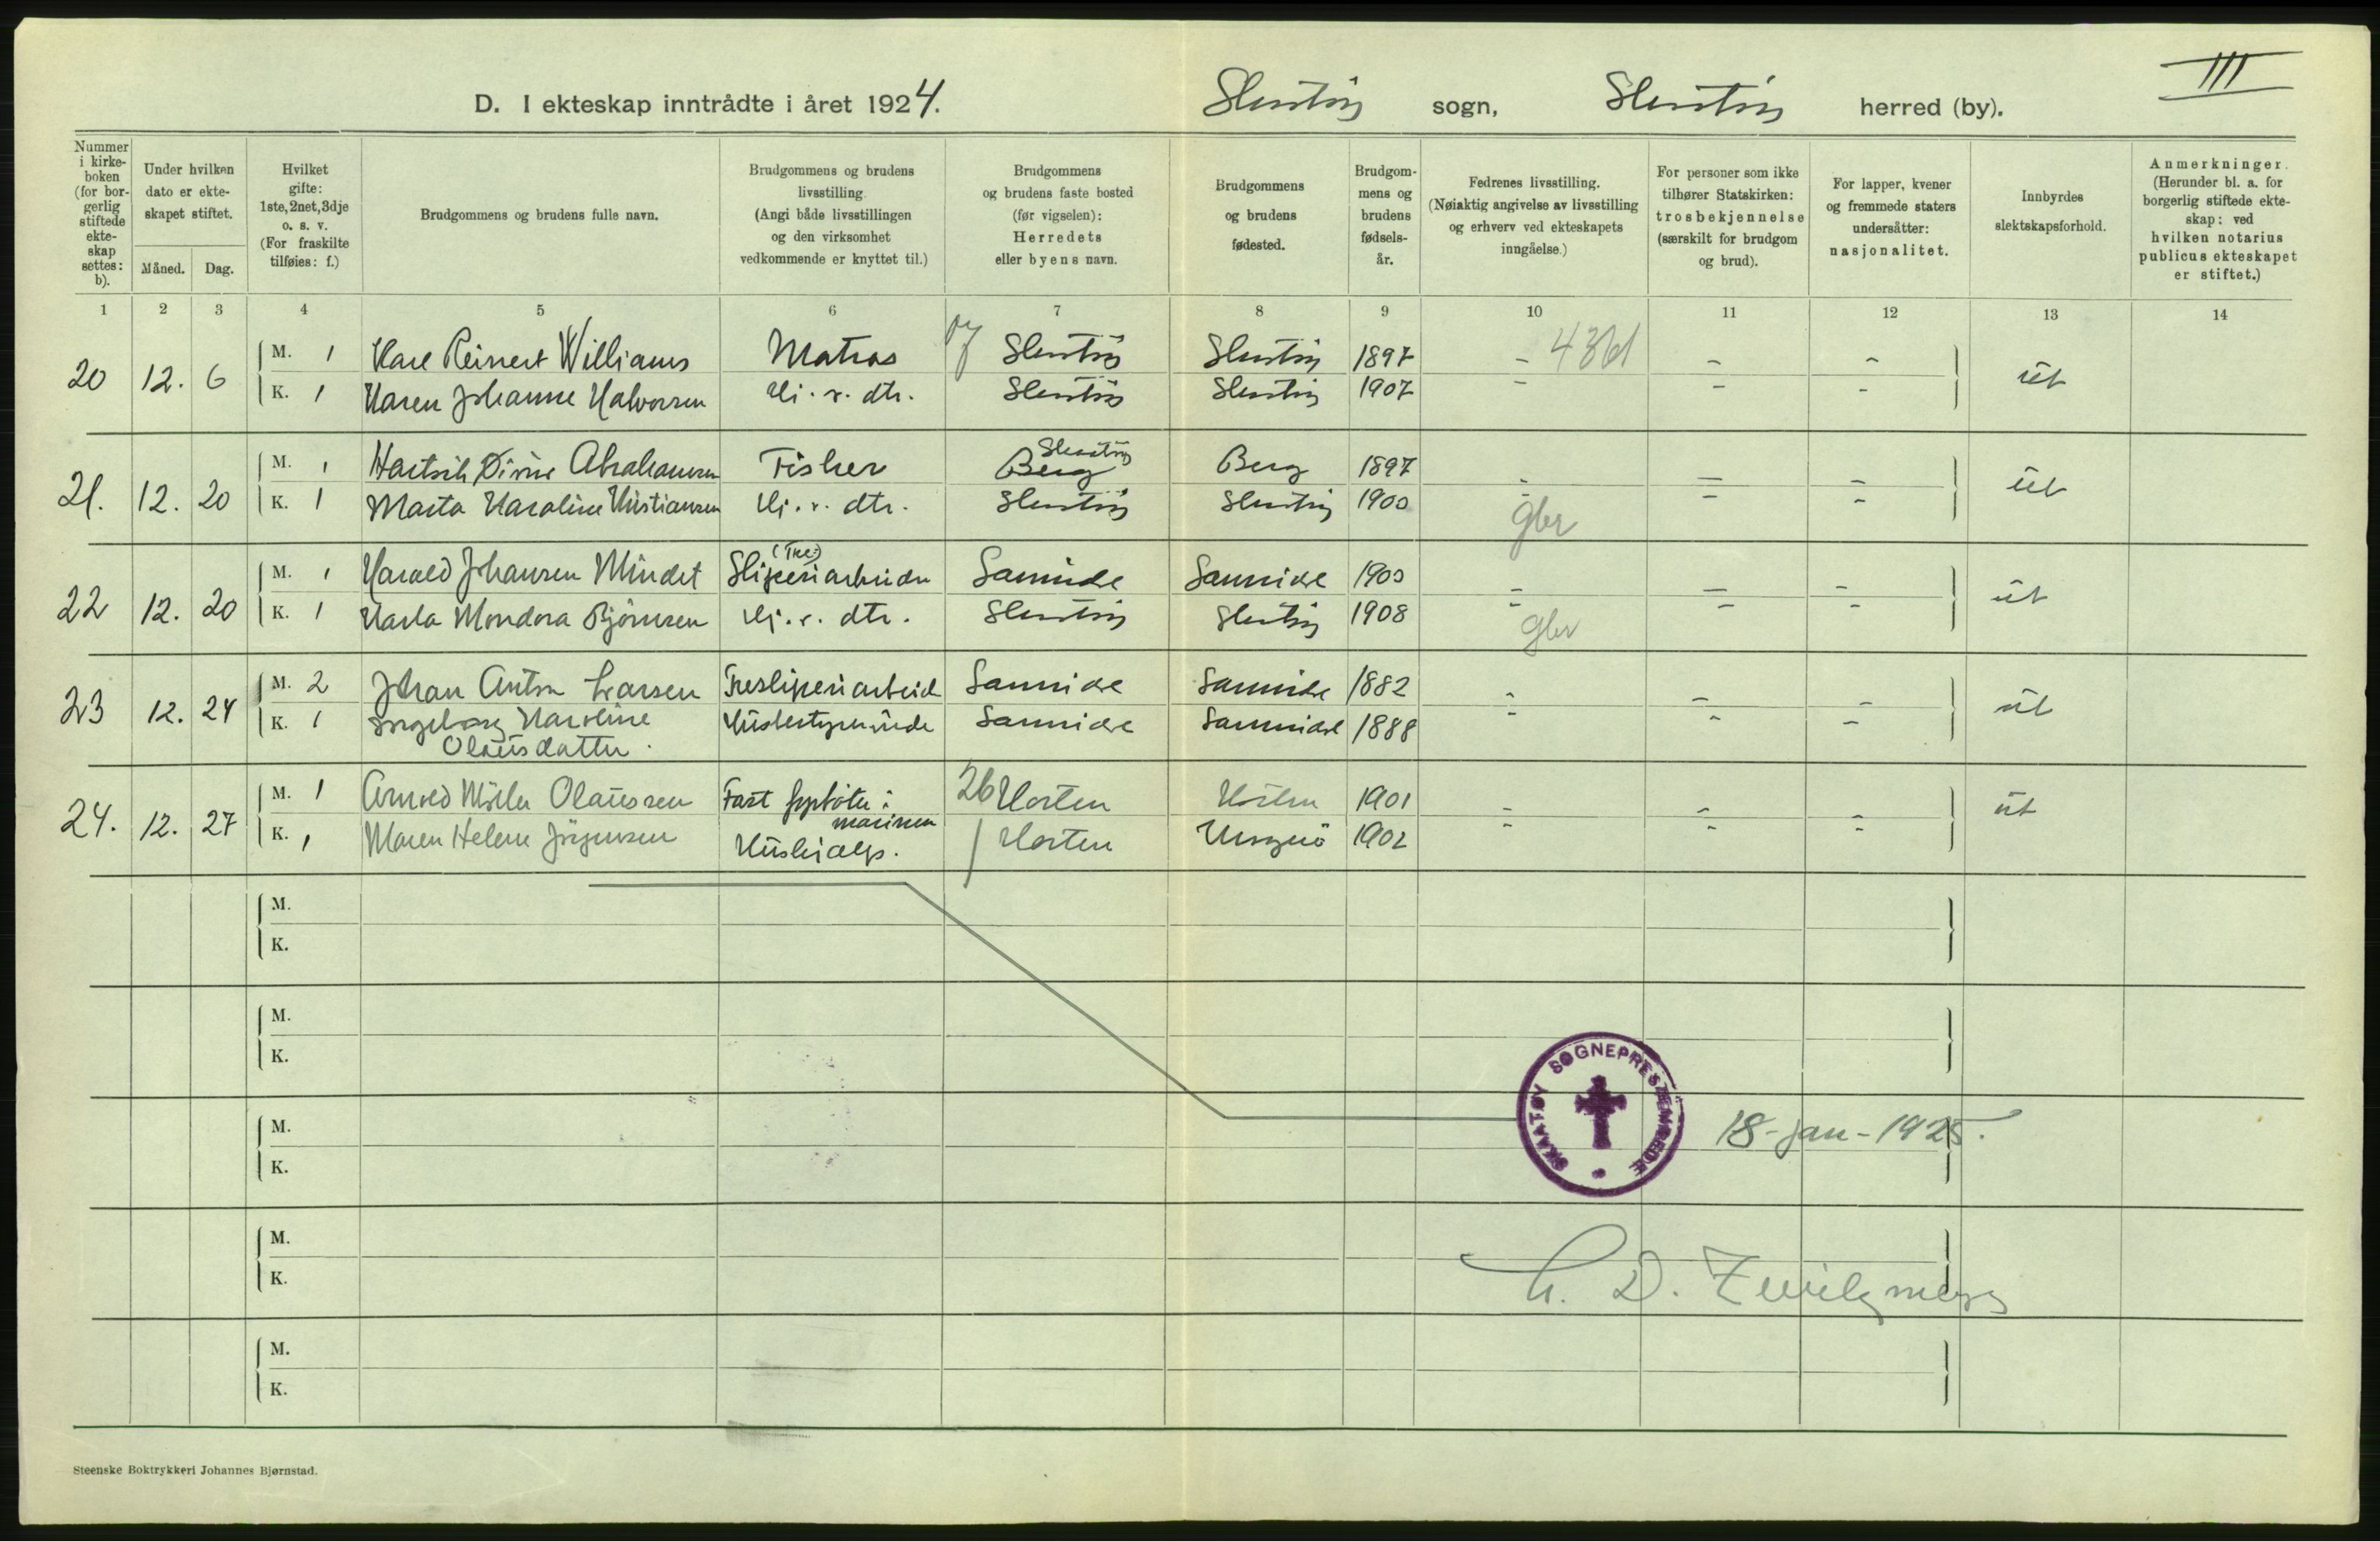 III
D. I ekteskap inntrådte i året 1924. Skåtøy sogn, Skåtøy herred (by).
Nummer i kirkeboken (for borgerlig stiftede ekteskap settes: b).
Under hvilken dato er ekteskapet stiftet.
Måned. Dag.
Hvilket gifte: 1ste, 2net, 3dje o. s. v. (For fraskilte tilføies: f.)
Brudgommens og brudens fulle navn.
Brudgommens og brudens livsstilling. (Angi både livsstillingen og den virksomhet vedkommende er knyttet til.)
Brudgommens og brudens faste bosted (før vigselen): Herredets eller byens navn.
Brudgommens og brudens fødested.
Brudgommens og brudens fødselsår.
Fedrenes livsstilling. (Nøiaktig angivelse av livsstilling og erhverv ved ekteskapets inngåelse.)
For personer som ikke tilhører Statskirken: trosbekjennelse (særskilt for brudgom og brud).
For lapper, kvener og fremmede staters undersåtter: nasjonalitet.
Innbyrdes slektskapsforhold.
Anmerkninger. (Herunder bl. a. for borgerlig stiftede ekteskap: ved hvilken notarius publicus ekteskapet er stiftet.)
1 2 3 4 5 6 7 8 9 10 11 12 13 14
20 12. 6 M. 1 Karl Reinert Williams Matros Skåtøy Skåtøy 1897 - - - ut
K. 1 Karen Johanne Halvorsen Hj. v. dtr. Skåtøy Skåtøy 1907 - - -
21. 12. 20 M. 1 Abrahamsen Fisker Berg Skåtøy Berg 1897 - - - ut
K. 1 Marta Karoline Kristiansen Hj. v. dtr. Skåtøy Skåtøy 1900 - - -
gbr
22 12. 20 M. 1 Harald Johansen Mindet (Tre) Sliperiarbeider Sannidal Sannidal 1900 - - - ut
K. 1 Karla Mondora Bjørnsen Hj. v. dtr. Skåtøy Skåtøy 1908 - - -
gbr
23 12. 24 M. 2 Johan Anton Larsen Tresliperiarbeid Sannidal Sannidal 1882 - - - ut
K. 1 Ingeborg Karoline Husbestyrerinde Sannidal Sannidal 1888 - - -
Olausdatter.
24. 12. 27 M. 1 Arnold Møller Olaussen Fast i 26 Horten Horten 1901 - - - ut
marinen
K. 1 Maren Helene Jørgensen Hushjælp. Horten 1902 - - -
M.
K.
M.
K.
M.
K.
M.
K.
M.
K.
SKAATØY SOGNEPRESTEMBEDE
18-jan-1925.
D. Zwilgmeyer
Steenske Boktrykkeri Johannes Bjørnstad.